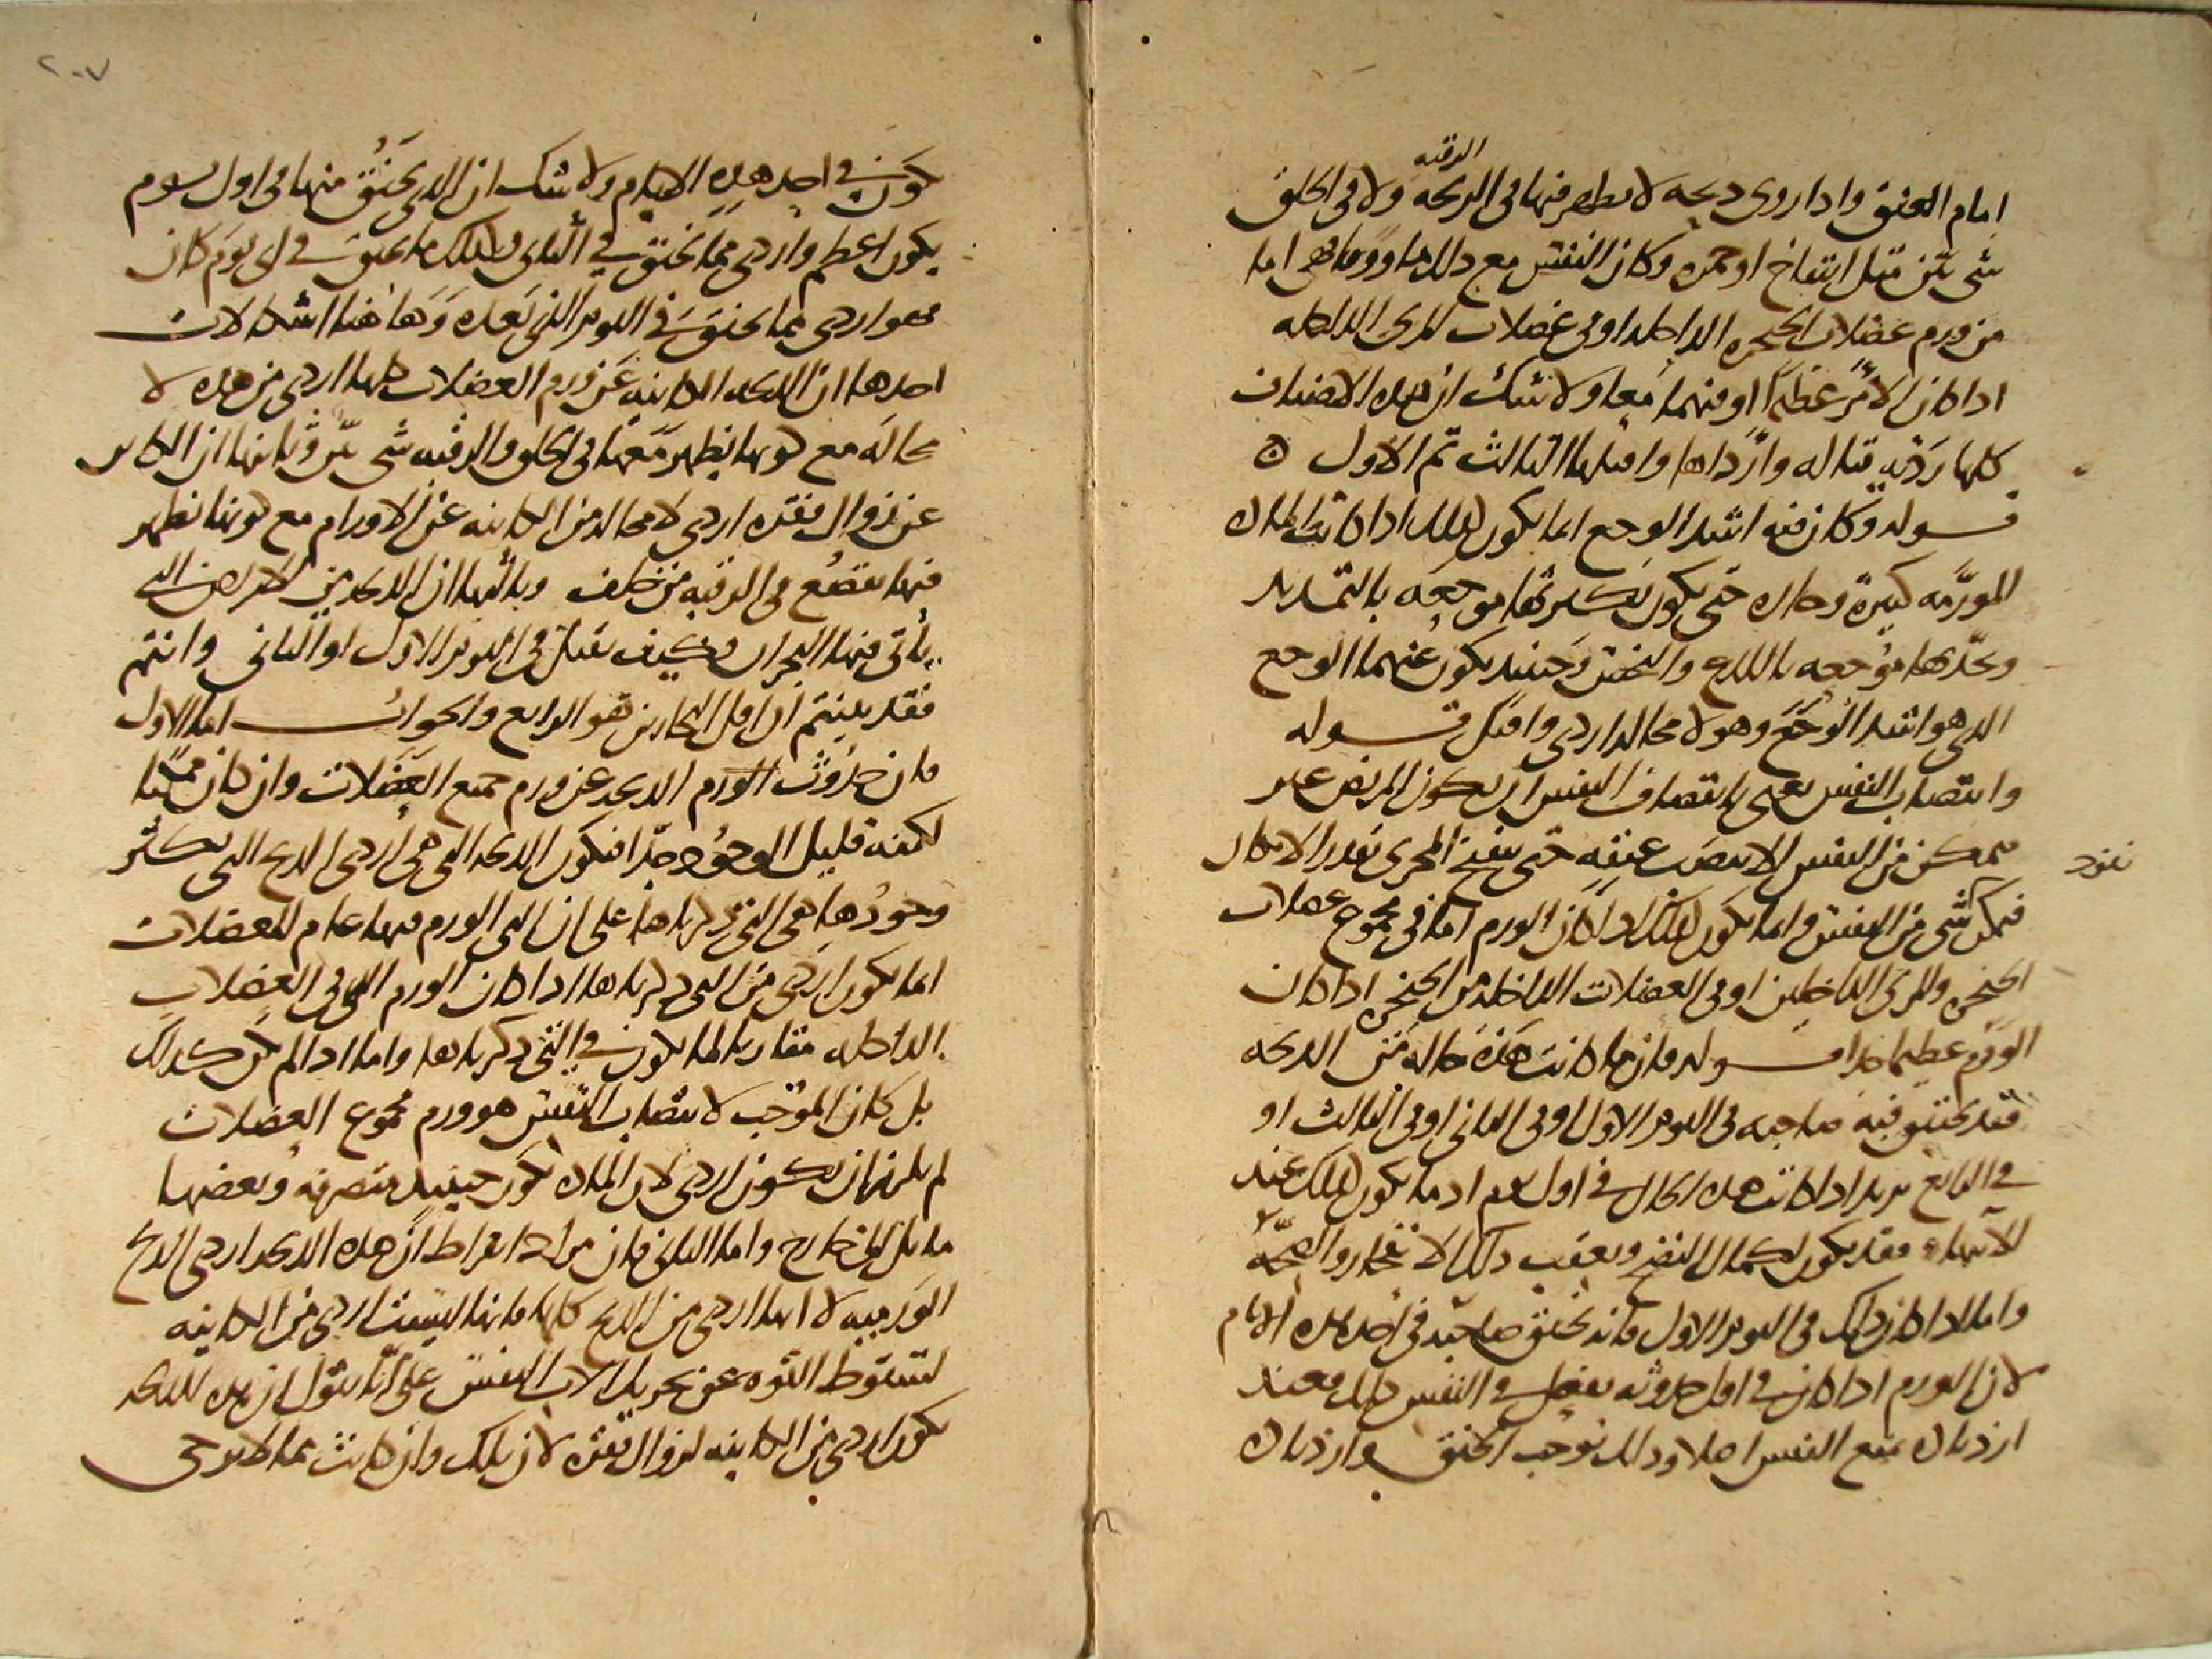 الرقبه
امام العنق واذا روى ذبحه لا يظهر فيها فى الذبحه ولا فى الحلق
شى بين مثل انتفاخ او حمره وكان النفس مع ذلك
من ورم عضلات الحنجره الداخله او فى عضلات المرى الداخله
اذا كان الامر عظيما او فيهما معا ولا شك ان هذه الاصناف
كلها رديه قتاله وارداها واقتلها الثالث ثم الاول
قوله وكان فيه اشد الوجع انما يكون كذلك اذا كانت الماده
المورمه كبيرة وحاره حتى يكون بكثرتها موجعه بالتمديد
وبحدتها موجعه باللذع والنخس وحينئذ يكون عنهما الوجع
الذى هو اشد الوجع وهو لا محاله اردى واقتل قوله
وانتصاب النفس يعنى بانتصاب النفس ان يكون المريض غير
متمكن من النفس الا بنصب عنقه حتى ينفتح المجرى بقدر الامكان
فيمكن شى من النفس وانما يكون كذلك اذا كان الورم اما فى مجموع عضلات
الحنجره والمرى الداخلين او فى العضلات الداخله من الحنجره اذا كان
الورم عظيما جدا قوله فان ما كانت هذه حاله من الذبحه
فقد يختنق فيه صاحبه فى اليوم الاول او فى الثانى او فى الثالث او
فى الرابع يريد اذا كانت هذه الحال فى اول يوم اذ ما يكون كذلك عند
الانتهاء فقد يكون لكمال النضج ويعقب ذلك الانفجار والصحة
واما اذا كان ذلك فى اليوم الاول فانه يختنق صاحبه فى احد هذه الايام
لان الورم اذا كان فى اول حدوثه يفعل فى النفس ذلك فعند
ازدياده يمنع النفس اصلا وذلك يوجب الخنق وازدياده
٢٠٧
يكون فى احد هذه الايام ولا شك ان الذى يختنق منها فى اول يوم
يكون اعظم واردى مما يختنق فى الثانى وكذلك ما يختنق فى اى يوم كان
فهو اردى مما يختنق فى اليوم الذى بعده وهاهنا اشكالات
احدها ان الذبحه الكاينه عن ورم العضلات كلها اردى من هذه لا
محاله مع كونها يظهر معها فى الحلق والرقبه شى بين وثانيها ان الكاين
عن زوال فقره اردى لا محاله من الكاينه عن الاورام مع كونها يظهر
فيها تقصع فى الرقبه من خلف وثالثها ان الذبحه من الامراض التى
يأتى فيها البحران فكيف تقتل فى اليوم الاول او الثانى وانتم
فقد بينتم ان اول البحارين هو الرابع والجواب اما الاول
فان حدوث الورم الذبحه عن ورم جميع العضلات وان كان ممكنا
لكنه قليل الوجود جدا فتكون الذبحه التى هى اردى الذبح التى يكثر
وجودها هى التى ذكرناها على ان التى الورم فيها عام للعضلات
انما يكون اردى من التى ذكرناها اذا كان الورم الذى فى العضلات
الداخله مقاربا لما يكون فى التى ذكرناها واما اذا لم يكن كذلك
بل كان الموجب لانتصاب النفس هو ورم مجموع العضلات
لم يلزم ان يكون اردى لان الماده تكون حينئذ متفرقه وبعضها
مايل الى خارج واما الثانى فان مراد ابقراط ان هذه الذبحه اردى الذبح
الورميه لا انها اردى من الذبح كلها فانها ليست اردى من الكاينه
لسقوط القوه عن تحريك الات النفس على انا نقول ان هذه الذبحه
يكون اردى من الكاينه لزوال فقره لان تلك وان كانت مما لا يرجى